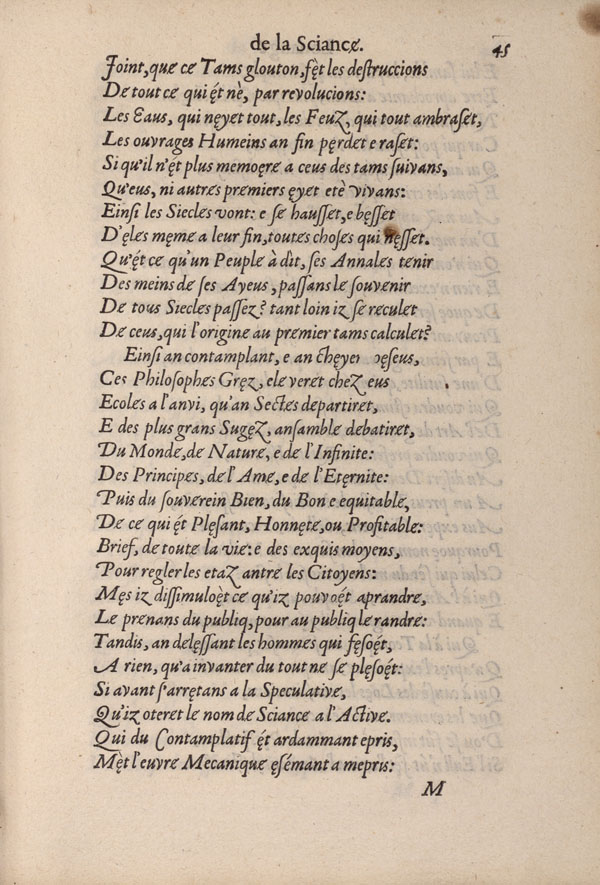 de la Sciancę.
45
Joint, que ce Tams glouton, fęt les destruccions
De tout ce qui ę́t nè, par revolucions:
Les Eaus, qui nęyet tout, les Feuz, qui tout ambraset,
Les ouvrages Humeins an fin pęrdet e raset:
Si qu'il n'ę́t plus memoęre a ceus des tams suivans,
Qu'eus, ni autres premiers ęyet etè vivans:
Einsi les Siecles vont: e se hausset, e bęsset
D'ęles męme a leur fin, toutes choses qui nęsset.
Qu'ę́t ce qu'un Peuple à dit, ses Annales tenir
Des meins de ses Ayeus, passans le souvenir
De tous Siecles passez? tant loin iz se reculet
De ceus, qui l'origine au premier tams calculet?
Einsi an contamplant, e an chęyet oęseus,
Ces Philosophes Gręz, eleveret chez eus
Ecoles a l'anvi, qu'an Sectes departiret,
E des plus grans Sugęz, ansamble debatiret,
Du Monde, de Nature, e de l'Infinite:
Des Principes, de l'Ame, e de l'Etęrnite:
Puis du souverein Bien, du Bon e equitable,
De ce qui ę́t Plęsant, Honnęte, ou Profitable:
Brief, de toute la vie: e des exquis moyens,
Pour regler les etaz antre les Citoyens:
Męs iz dissimuloę̀t ce qu'iz pouvoę́t aprandre,
Le prenans du publiq, pour au publiq le randre:
Tandis, an delęssant les hommes qui fęsoę́t,
A rien, qu'a invanter du tout ne se plęsoę́t:
Si avant s'arrętans a la Speculative,
Qu'iz oteret le nom de Sciance a l'Active.
Qui du Contamplatif ę́t ardammant epris,
Mę̀t l'euvre Mecanique ęsémant a mepris:
M